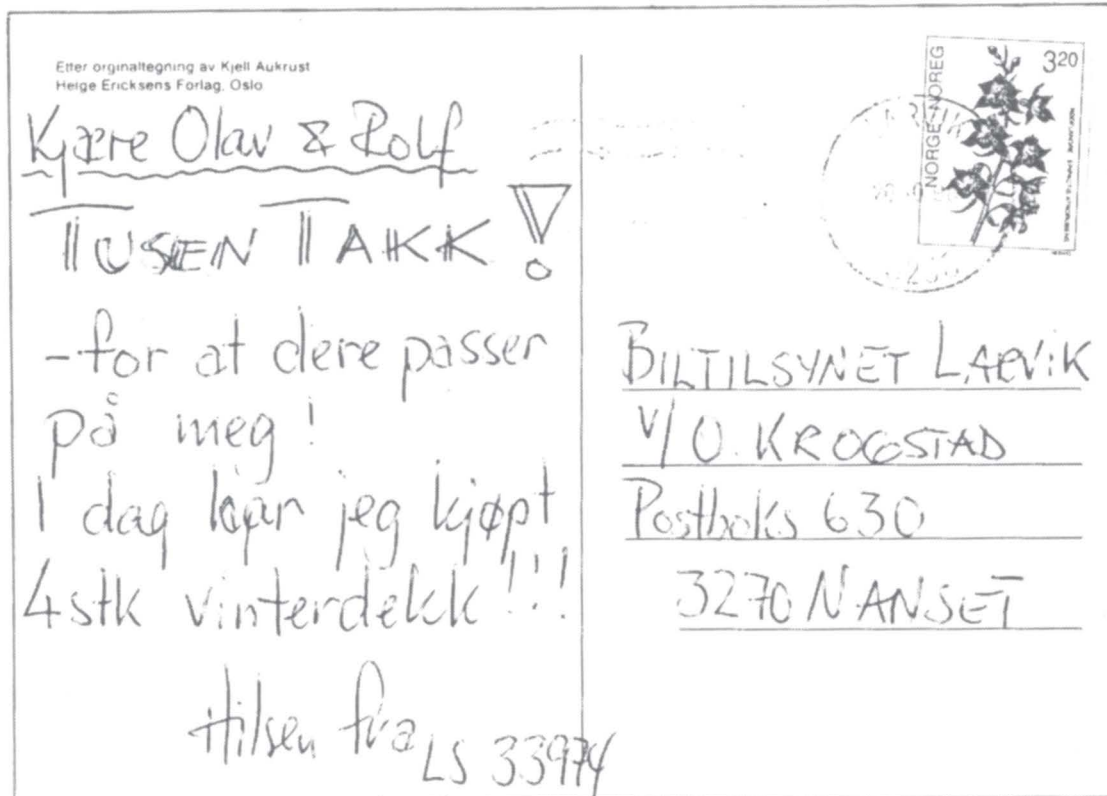 Etter orginaltegning av Kjell Aukrust
Helge Ericksens Forlag, Oslo
Kjære Olav & Rolf
TUSEN TAKK!
-for at dere passer
på meg!
I dag har jeg kjøpt
4stk vinterdekk!!!
Hilsen fra
LS 33974
NORGE NOREG
320
BILTILSYNET LARVIK
V/ O. KROGSTAD
Postboks 630
3270 NANSET